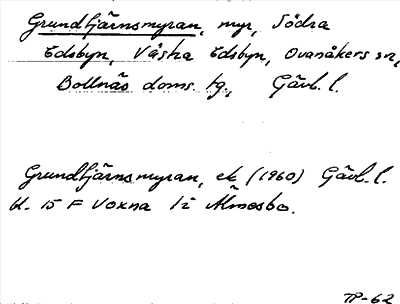 Grundtjärnsmyran, myr, Södra
Edsbyn, Västra Edsbyn, Ovanåkers sn,
Bollnäs doms. tg., Gävl. l.
Grundtjärnsmyran, ek (1960) Gävl. l.
bl. 15 F Voxna 1 i Älmosbo.
TP-62